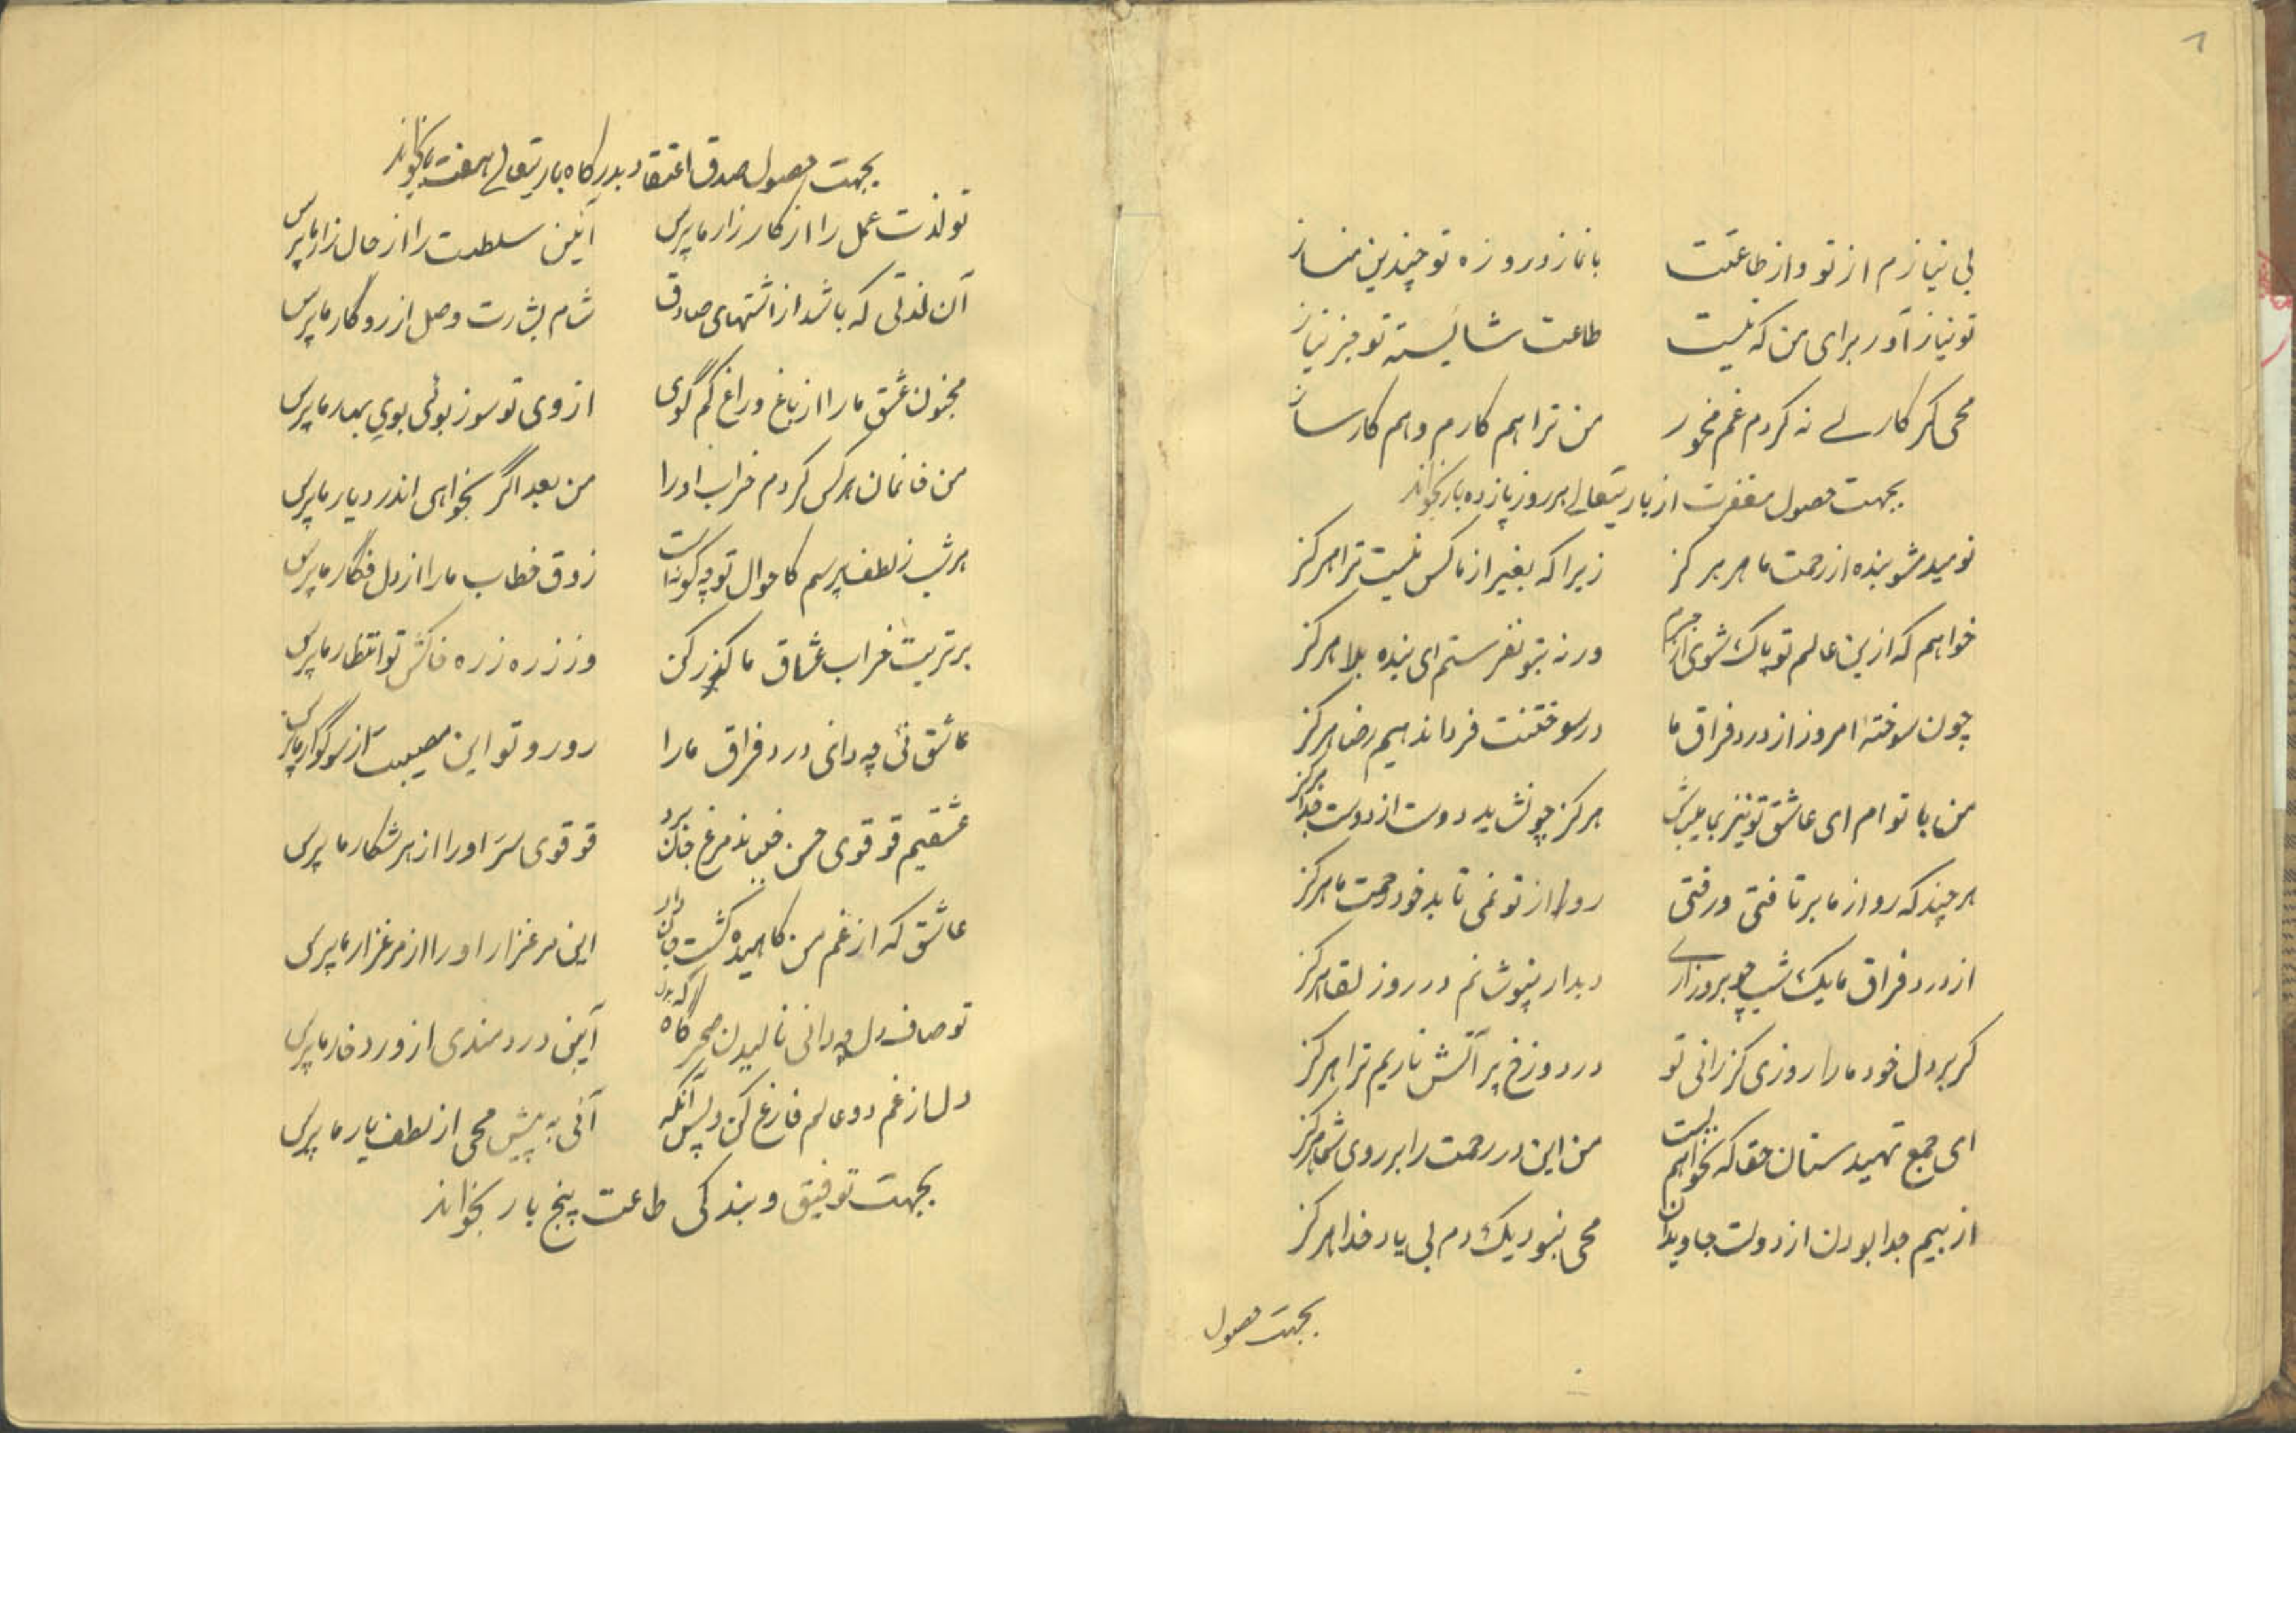 بی نیازم از تو و از طاعتت بانماز و روزه تو چندین مناز
تو نیاز آور برای من که نیست طاعت شایسته تو جز نیاز
محی کر کاری نه کردم غم مخور من ترا هم کارم و هم کارساز
بجهت حصول مغفرت از باریتعالے هر روز یازده بار بخواند
نومید مشو بنده از رحمت ما هرکز زیرا که بغیر از ما کس نیست ترا هرکز
خواهم که ازین عالم تو پاک شوی از جرم ورنه بتو نفرستم ای بنده بلا هرکز
چون سوختهٔ امروز از درد فراق ما در سوختنت فردا ندهیم رضا هرکز
من با تو ام ای عاشق تو نیز بما میباش هرکز چو نشاید دوست از دوست جدا هرکز
هر چند که رو از ما برتافتی و رفتی رو را از تو نمی تابد خود رحمت ما هرکز
از درد فراق ما یک شب چو بروز آری دیدار نپوشانم در روز لقا هرکز
کر بر دل خود ما را روزی کزرانی تو در دوزخ پر آتش ناریم ترا هرکز
ای جمع تهیدستان حقا که نخواهیم بست من این در رحمت را بر روی شما هرکز
از بیم جدا بودن از دولت جاویدان محی نبود یک دم بی یاد خدا هرکز
بجهت حصول
بجهت حصول صدق اعتقاد بدرگاه باریتعالے هفت بار بخواند
تو لذت عمل را از کارزار ما پرس آئین سلطنت را از حال زار ما پرس
آن لذتی که باشد از اشتهای صادق شام بشارت وصل از روگار ما پرس
مجنون عشق ما را از باغ و راغ کم گوی از وی تو سوز بوئی بوی بهار ما پرس
من خانمان هرکس کردم خراب او را من بعد اگر بخواهی اندر دیار ما پرس
هر شب ز لطف پرسم کاحوال تو چه گونه است ذوق خطاب ما را از دل فگار ما پرس
بر تربت خراب عشاق ما گذر کن وز ذره ذره خاکش تو انتظار ما پرس
عاشق نئی چه دانی درد فراق ما را رو رو تو این مصیبت از سوگوار ما پرس
عشقیم قوقوی حسن خوباند مرغ جان برد قوقوی سر او را از هر شکار ما پرس
عاشق که از غم من کاهیده گشت جان داد این مرغزار او را از مرغزار ما پرس
تو صاف دل چه دانی نالیدن سحرگاه آیین دردمندی از ورد خار ما پرس
دل از غم دو عالم فارغ کن و پس آنگه آئی به پیش محی از لطف یار ما پرس
بجهت توفیق و بندکی طاعت پنج بار بخواند